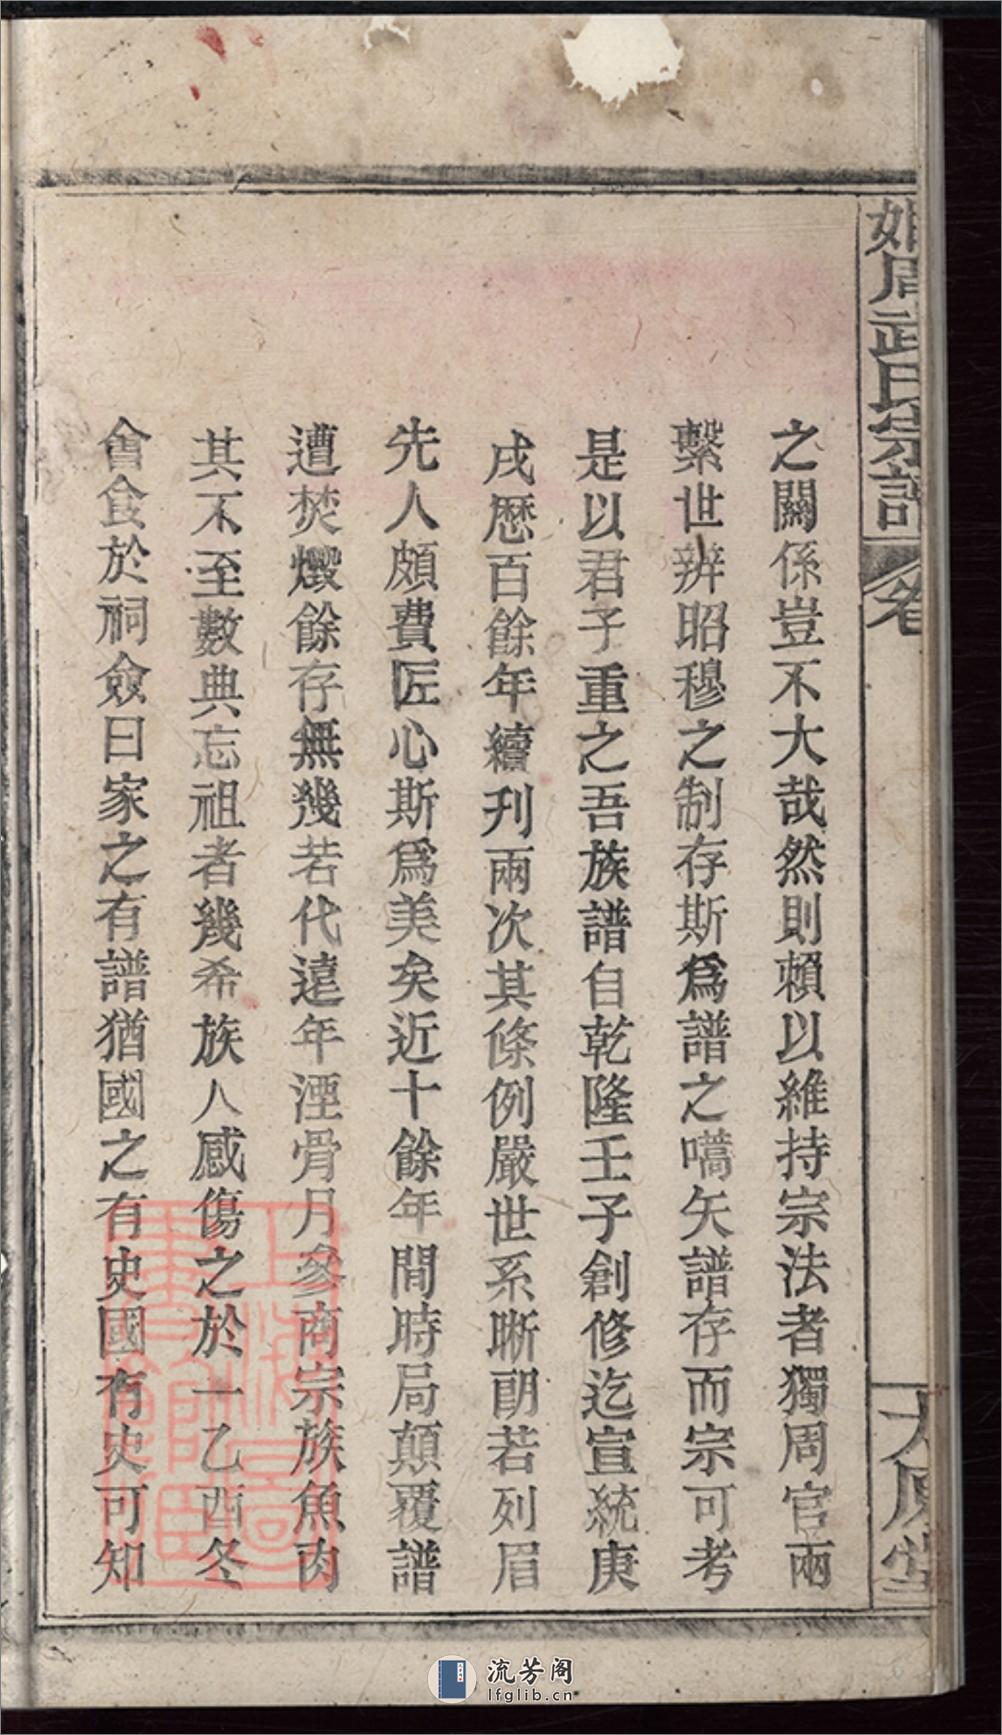 姬周武氏宗譜
卷
太原堂
之關係豈不大哉然則賴以維持宗法者獨周官兩
繫世辨昭穆之制存斯爲譜之嚆矢譜存而宗可考
是以君子重之吾族譜自乾隆壬子創修迄宣統庚
戌歷百餘年續刋兩次其條例嚴世系晰朗若列眉
先人頗費匠心斯爲美矣近十餘年間時局顛覆譜
遭焚燬餘存無幾若代遠年湮骨月參商宗族魚肉
其不至數典忘祖者幾希族人感傷之於一乙酉冬
會食於祠僉曰家之有譜猶國之有史國有史可知
上海圖書館藏
流芳阁
lfglib.cn